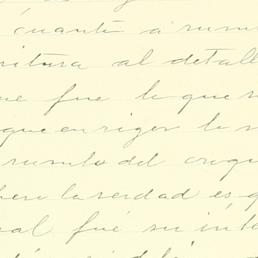 cuanti á rum
ritura al detall
ue fue lo que s
que en rigor lo s
rumbo del orqu
pero la verdad es q
al fué su inte